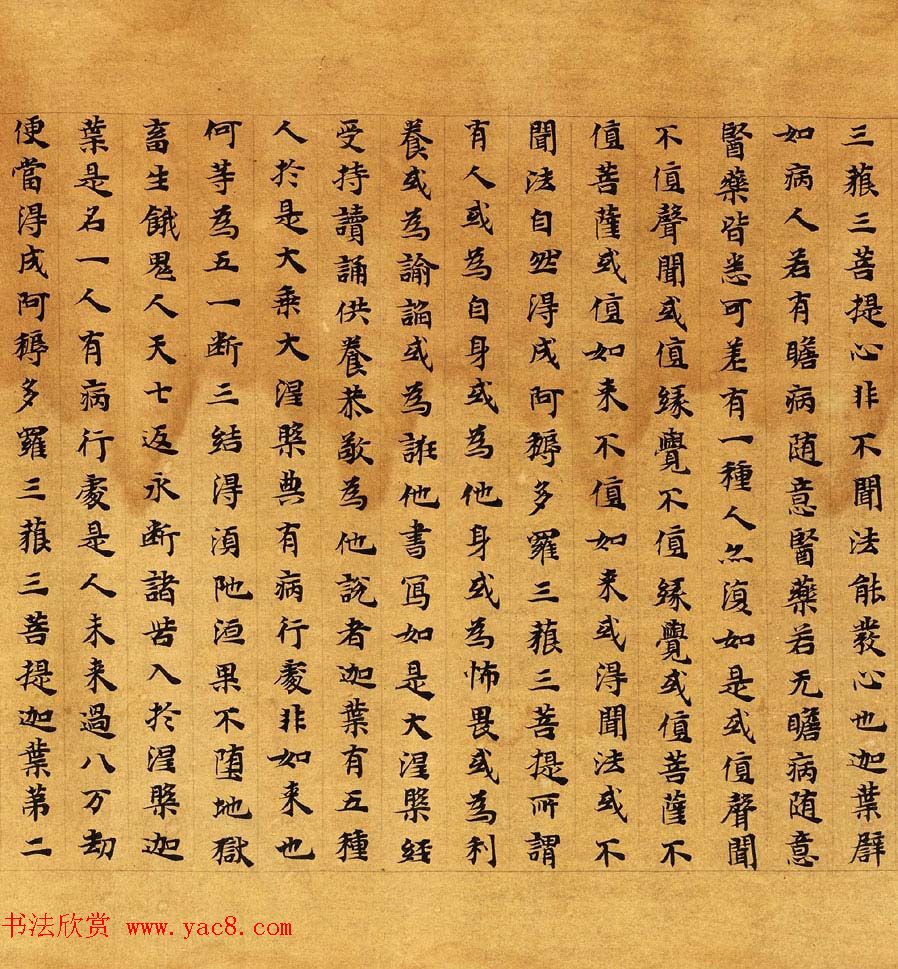 三菔三菩提心非不聞法能發心也迦葉辟
如病人若有瞻病随意醫藥若无瞻病随意
醫藥皆悉可差有一種人亦復如是或值聲聞
不值聲聞或值緣覺不值緣覺或值菩薩不
值菩薩或值如来不值如来或得聞法或不
聞法自然得成阿耨多羅三菔三菩提所謂
有人或為自身或為他身或為怖畏或為利
養或為諭諂或為誑他書寫如是大涅槃經
受持讀誦供養恭敬為他說者迦葉有五種
人於是大乘大涅槃典有病行處非如来也
何等為五一断三結得湏陁洹果不堕地獄
畜生餓鬼人天七返永断諸苦入於涅槃迦
葉是名一人有病行處是人未来過八万劫
便當得成阿耨多羅三菔三菩提迦葉苐二
书法欣赏 www.yac8.com